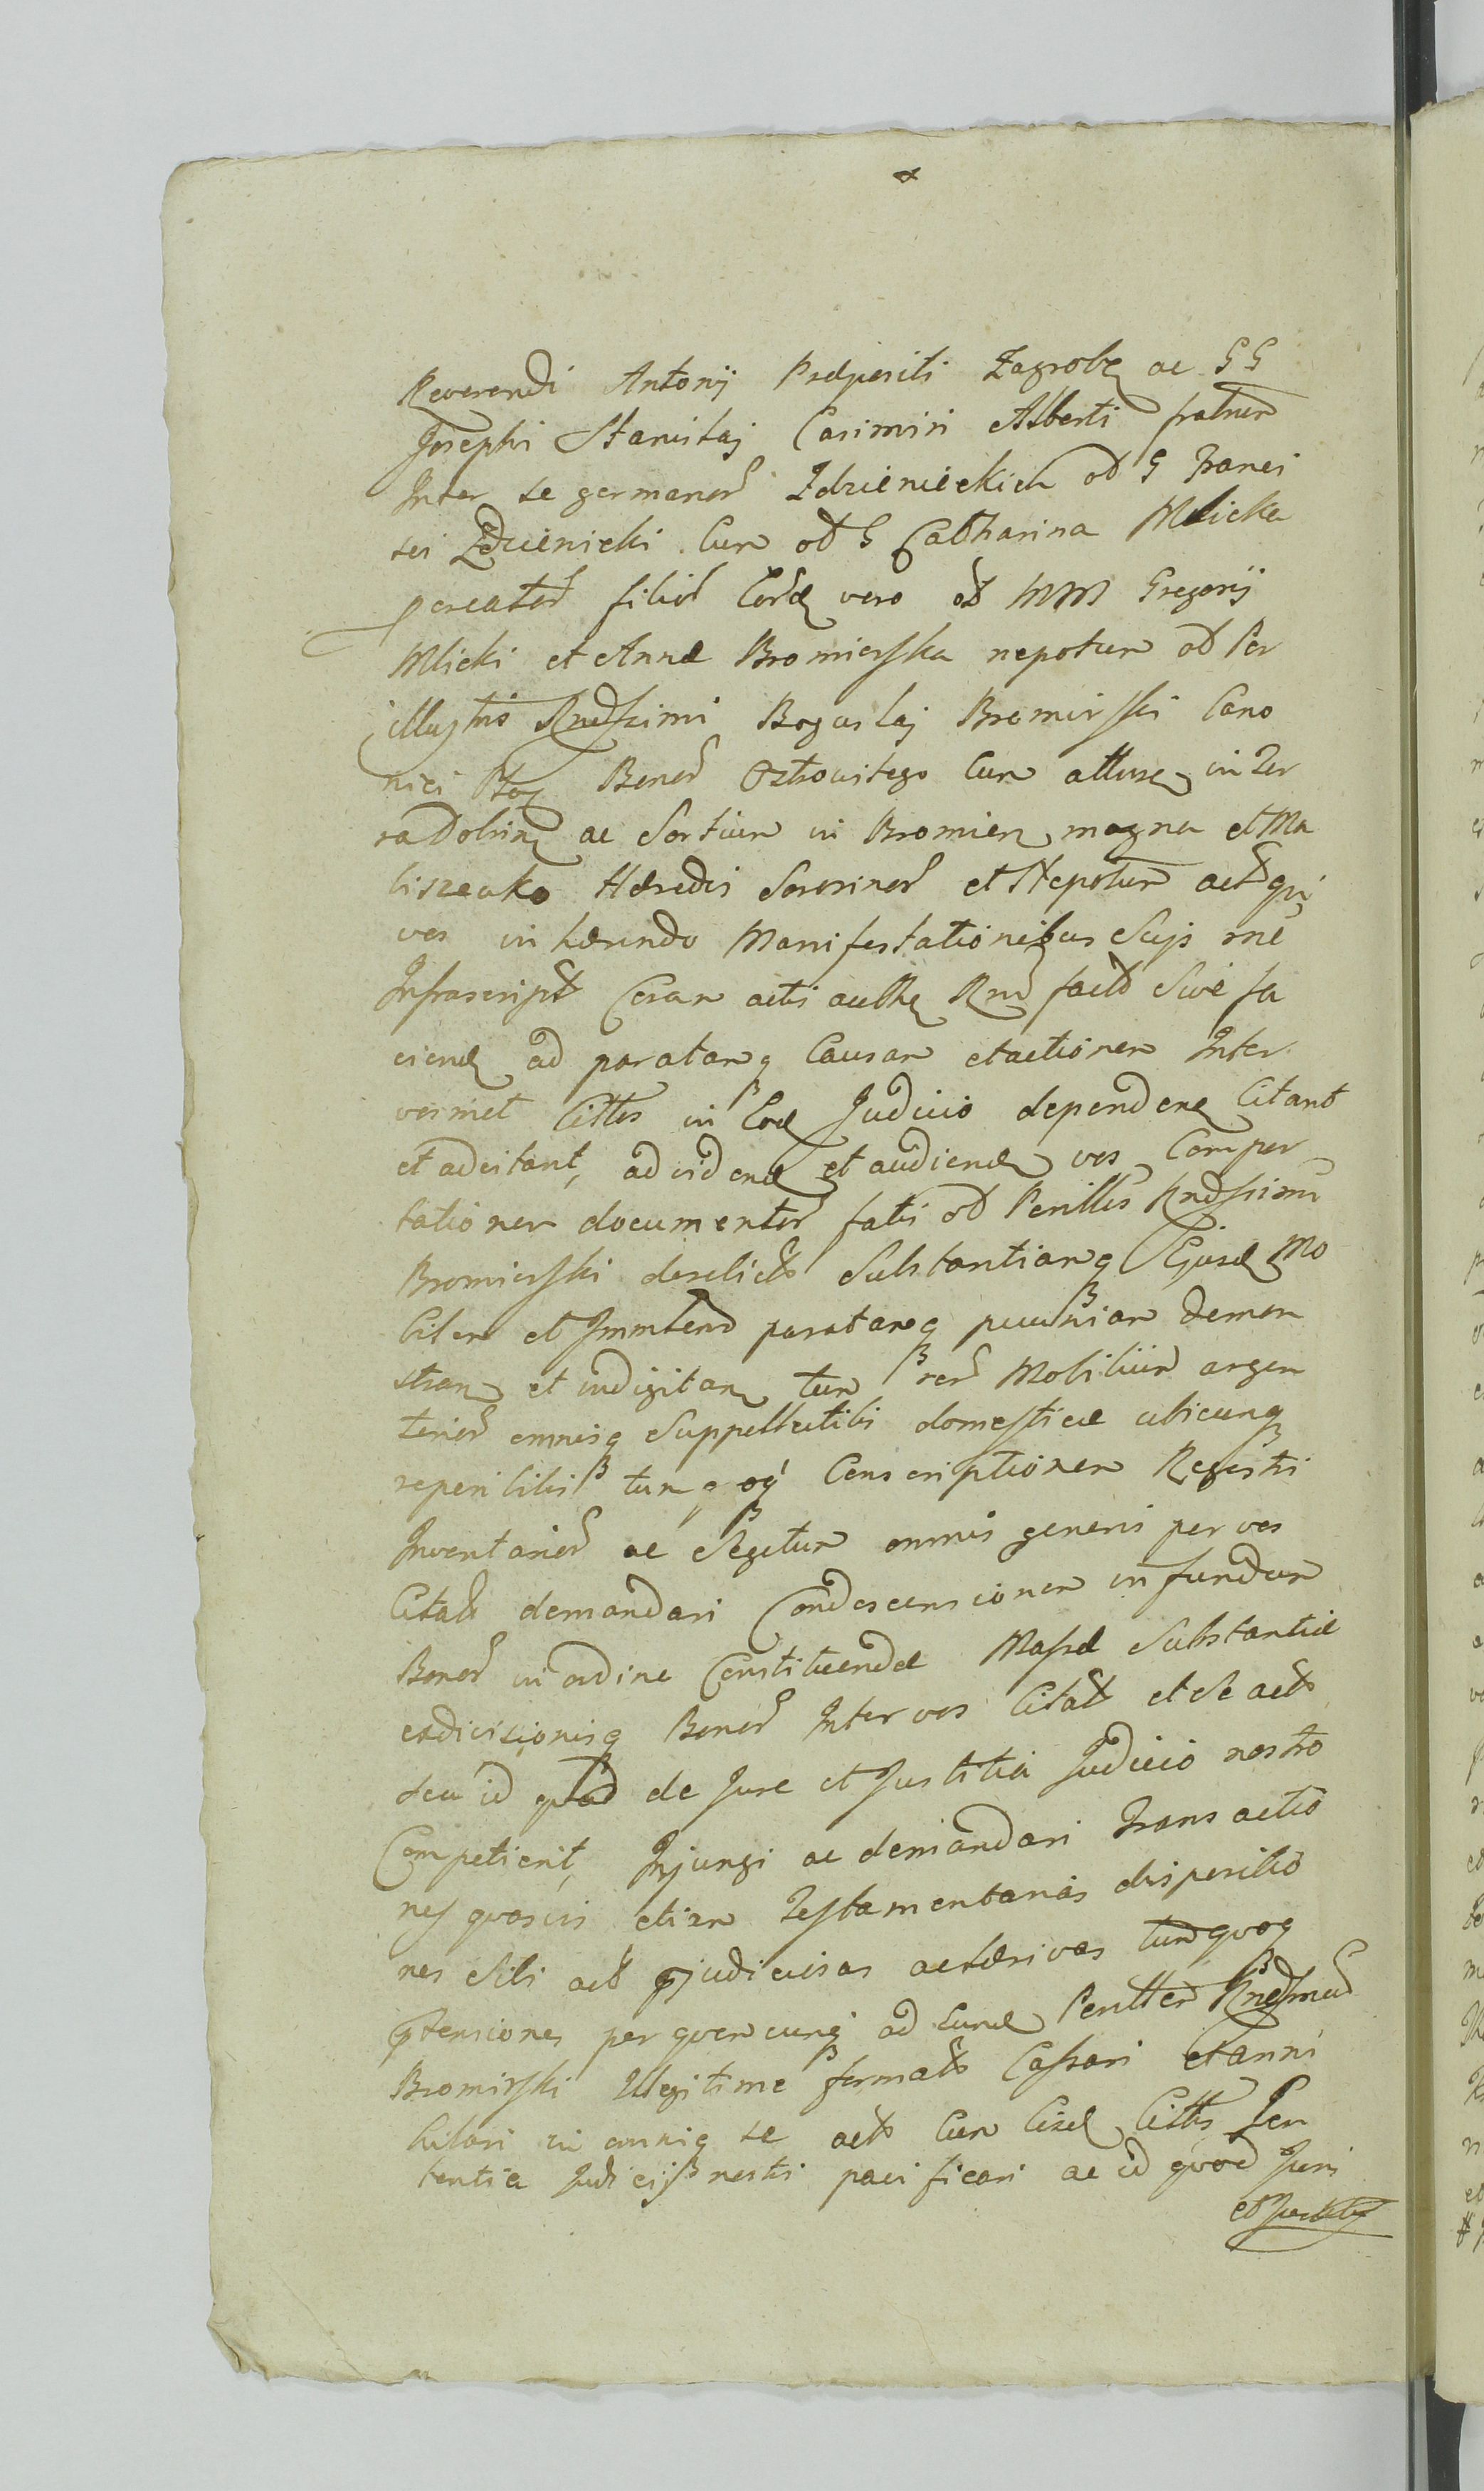 Reverendi Antonij Praepositi Zagrobę ac G G
Josephi Stanislaj Casimiri Alberti fratrum
Inter se germanor Zdzienickich od G Franci
sci Zdzienicki Cum od G Catharina Mlicka
pcreator filior Eord vero od MM Gregorij
Mlicki et Annae Bromierska nepotum od Per
illustris Rndssimi Boguslaj Bromirski Cano
nici Bonor Ostrowitego Cum attinę in Zer
ac Sortium in Bromierz magna et Ma
liszewko Haeredis Sororinor et Nepotum act qui
vos inhaerendo Manifestationibus Suis me
Infrascript Coram actis authę Rnd fact Sive fa
ciend ad paratamq Causam et actionem Inter
vosmet Cittos in Eod Judicio dependenę Citant
et adcitant, ad videnđ et audienđ vos Compor
tationem documentor fatis od Perillis Rndssimi
Bromierski derelict Substantiamq Ejusd Mo
bilem et Immblem paratamq pecuniam demon
stran et indigitan tum rer Mobilium argen
terior omnisq Suppellectilis domesticae ubicunq
reperibilis tum qoq Conscriptionem Regestri
Inventarior ac Segetum omnis generis per vos
Citatt demandari Condescensionem in fundum
Bonor in ordine Constituendae Massae Substantiae
exdivisionisq Bonor Inter vos Citatt et Se actt
seu id quod de Jure et Justitia Judicio nostro
Competierit, Injungi ac demandari Transactio
nes quosvis etiam Testamentarias dispositio
nes Sibi act pjudiciosas ac tum quoq
ptensiones per quemcunq ad Eund Perillem Rndssmum
Bromirski Illegitime formatt Cassari et anni
hilari in omniq se actt Cum Eisd Cittis Sen
tentia Judicij nostri pacificari ac id quod Juri
et Justitię